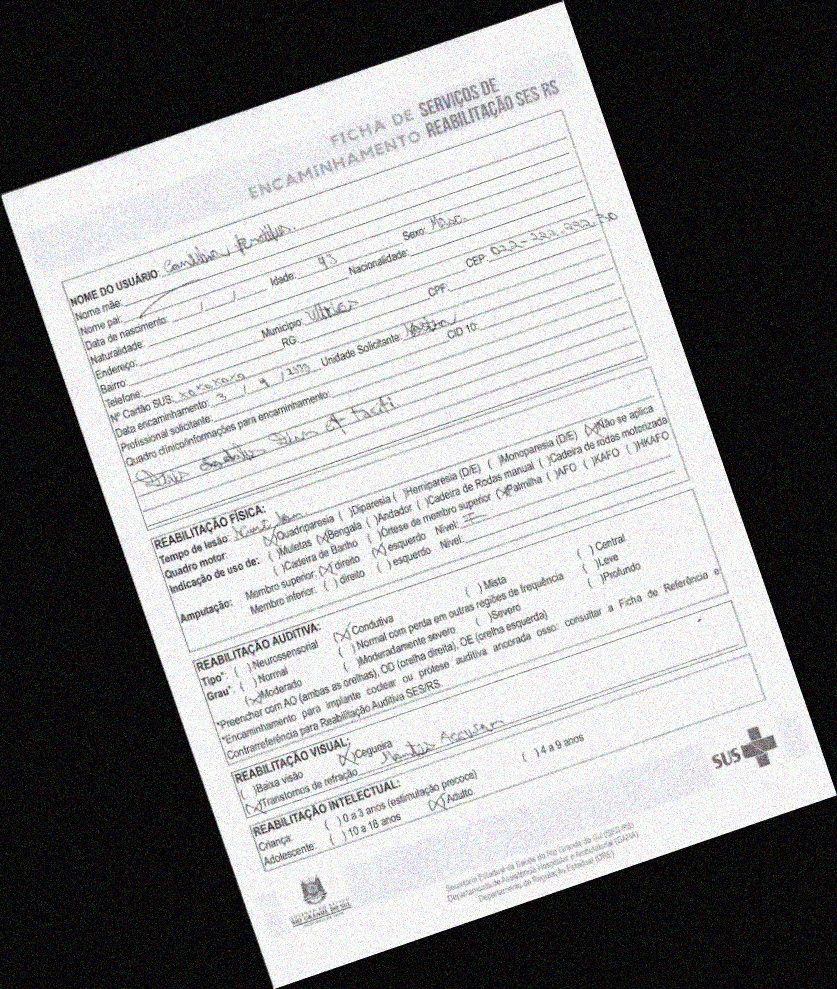 FICHA DE SERVIÇOS DE
ENCAMINHAMENTO REABILITAÇÃO SES RS
NOME DO USUÁRIO:
Nome mãe:
Nome pai: Idade: 93 Sexo: Masc.
Data de nascimento: / / Nacionalidade:
Naturalidade:
Endereço: CEP: 022-222.292.30
Bairro: Município: CPF:
Telefone: RG:
Nº Cartão SUS: xoxoxoxo CID 10:
Data encaminhamento: 3 / 9 / Unidade Solicitante:
Profissional solicitante:
Quadro clínico/informações para encaminhamento:
et
REABILITAÇÃO FÍSICA:
Tempo de lesão:
Quadro motor: (X)Quadriparesia ( )Diparesia ( )Hemiparesia (D/E) ( )Monoparesia (D/E) (X)Não se aplica
Indicação de uso de: ( )Muletas (X)Bengala ( )Andador ( )Cadeira de Rodas manual ( )Cadeira de rodas motorizada
( )Cadeira de Banho ( )Órtese de membro superior (X)Palmilha ( )AFO ( )KAFO ( )HKAFO
Amputação: Membro superior: (X) direito (X) esquerdo Nível: I
Membro inferior: ( ) direito ( ) esquerdo Nível:
REABILITAÇÃO AUDITIVA:
Tipo*: ( )Neurossensorial (X)Condutiva ( )Mista ( ) Central
Grau*: ( )Normal ( )Normal com perda em outras regiões de frequência ( )Leve
(X)Moderado ( )Moderadamente severo ( )Severo ( )Profundo
*Preencher com AO (ambas as orelhas), OD (orelha direita), OE (orelha esquerda)
*Encaminhamento para implante coclear ou prótese auditiva ancorada osso: consultar a Ficha de Referência e
Contrarreferência para Reabilitação Auditiva SES/RS.
REABILITAÇÃO VISUAL:
( )Baixa visão (X)Cegueira
(X)Transtornos de refração Accusam
REABILITAÇÃO INTELECTUAL:
Criança: ( ) 0 a 3 anos (estimulação precoce) ( ) 4 a 9 anos
Adolescente: ( ) 10 a 18 anos (X)Adulto
SUS
RIO GRANDE DO SUL
Secretaria Estadual da Saúde do Rio Grande do Sul (SES/RS)
Departamento de Assistência Hospitalar e Ambulatorial (DAHA)
Departamento de Regulação Estadual (DRE)